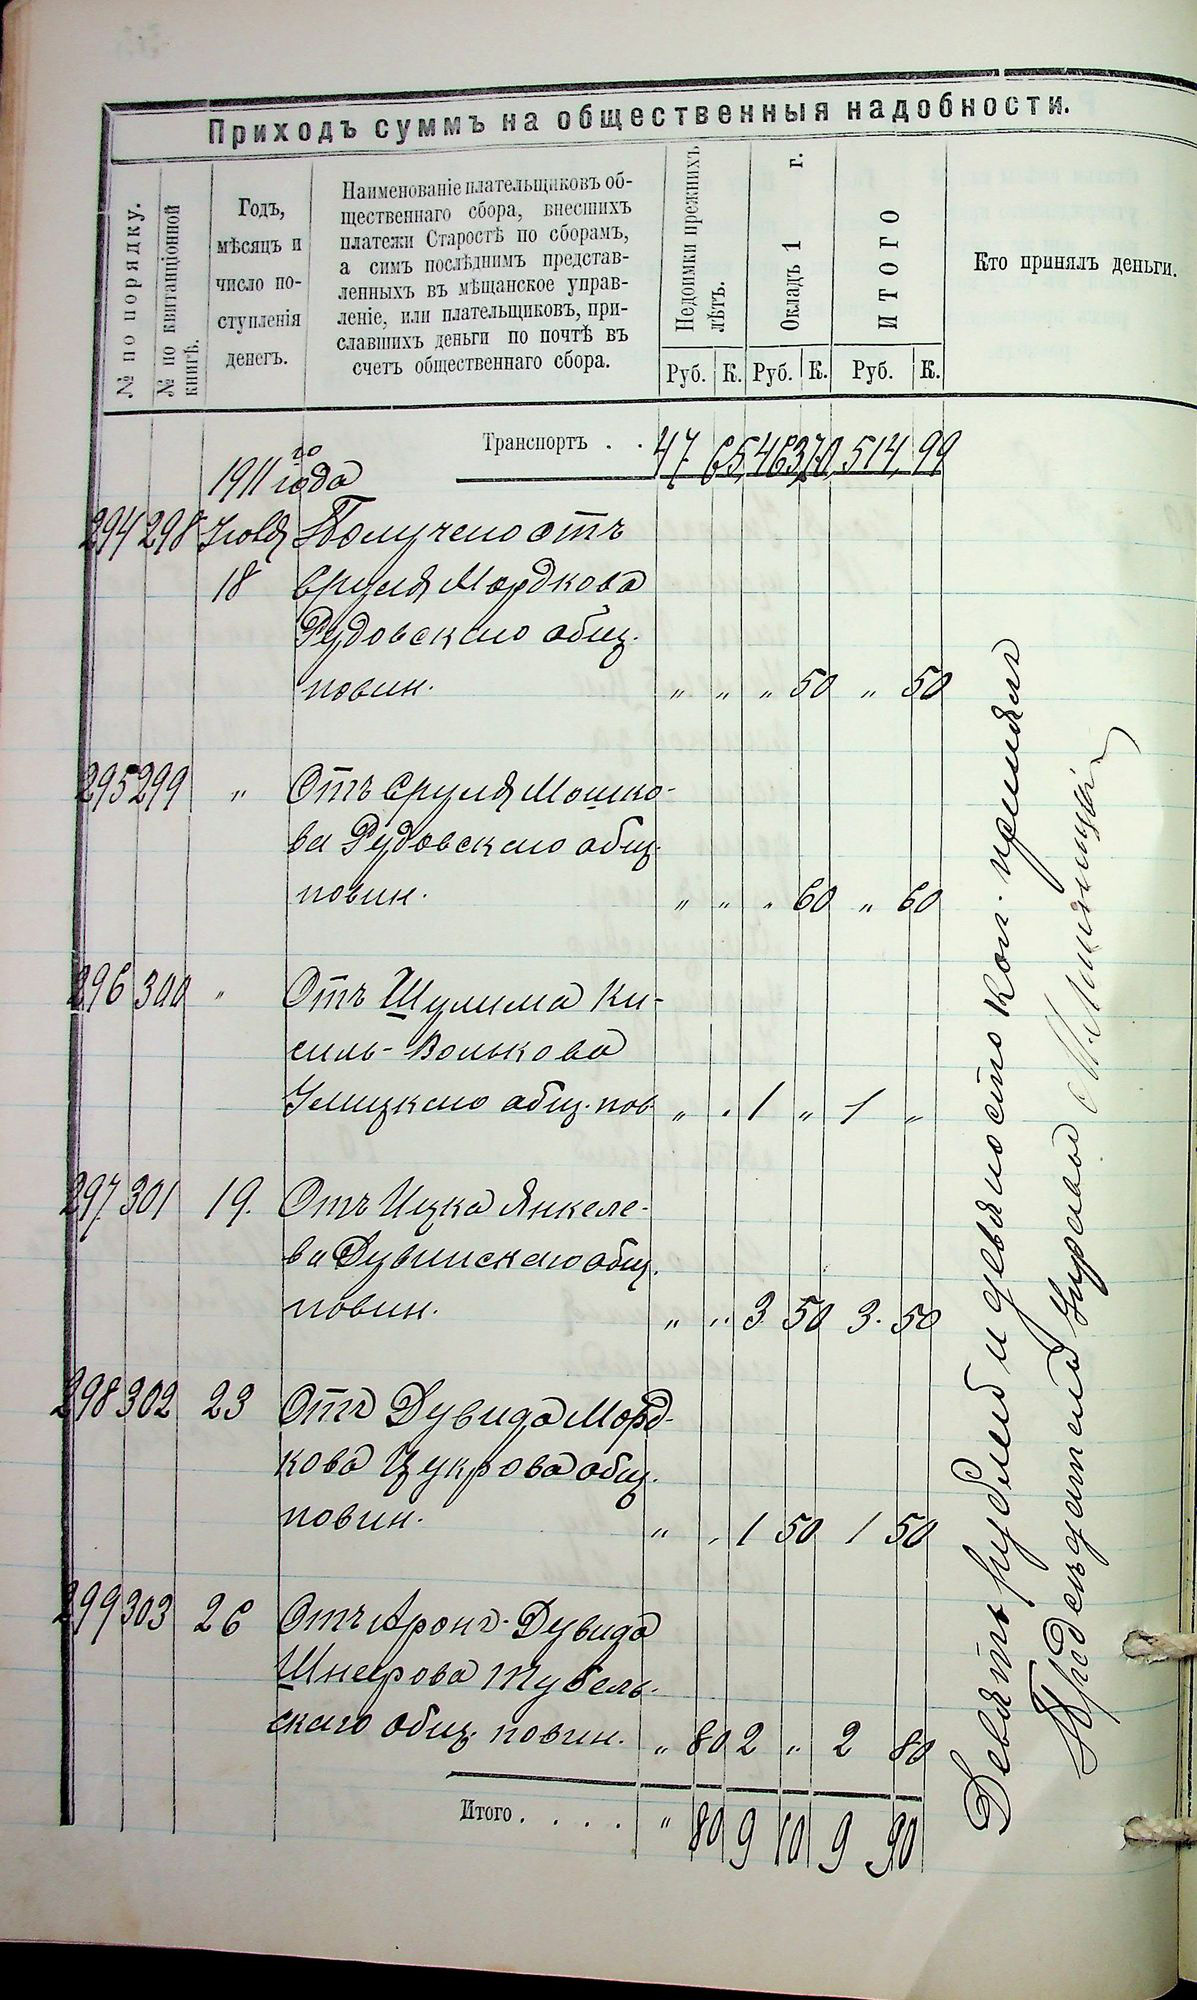 Приходъ суммъ на общественныя надобности.
№ по порядку.
№ по квитанціонной книгѣ.
Годъ,
мѣсяцъ и
число по-
ступленія
денегъ.
Наименованіе плательщиковъ об-
щественнаго сбора, внесшихъ
платежи Старостѣ по сборамъ,
а симъ послѣднимъ представ-
ленныхъ въ мѣщанское управ-
леніе, или плательщиковъ, при-
славшихъ деньги по почтѣ въ
счетъ общественнаго сбора.
Недоимки прежнихъ
лѣтъ.
Окладъ 1 г.
ИТОГО
Кто принялъ деньги.
Руб. К. Руб. К. Руб. К.
Транспортъ . . 47 65 463 70 514 99
1911 го года
294 298 Іюля Получено отъ
18 Сруля Мордкова
Рудовскаго общ.
повин. " " " 50 " 50
295 299 " Отъ Сруля Мошко-
ва Рудовскаго общ.
повин. " " " 60 " 60
296 300 " Отъ Шулима Ки-
силь-Волькова
Улицкаго общ. пов. " " 1 " 1 "
297. 301 19. Отъ Ицка Янкеле-
ва Дувинскаго общ.
повин. " " 3 50 3. 50
298 302 23 Отъ Дувида Морд-
кова Цукрова общ.
повин. " " 1 50 1 50
299 303 26 Отъ Арона-Дувида
Шнеерова Тубель-
скаго общ. повин. " 80 2 " 2 80
Итого . . . . " 80 9 10 9 90
Девять рублей и девяносто коп. принялъ
Предсѣдатель Управы